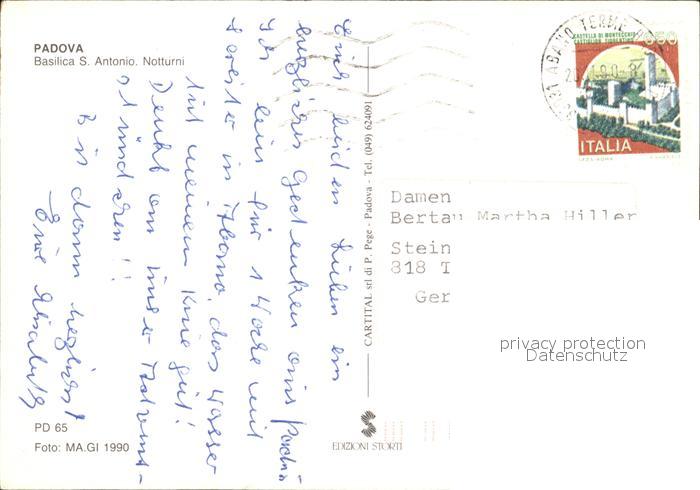 PADOVA
Basilica S. Antonio. Notturni
Euch beiden lieben ein
herzliches Gedenken aus Padua
Ich bin für 1 Woche mit
in Abano, das Wasser
tut meinem Knie gut!
Denkt an unser
München!!
Bis dann herzlichst
Eure
PD 65
Foto: MA.GI 1990
CARTITAL srl di P. Pege - Padova - Tel. (049) 624091
EDIZIONI STORTI
ABANO TERME
CASTELLO DI MONTECCHIO
CASTIGLION FIORENTINO
650
ITALIA
Damen
Bertau Martha Hiller
Stein
818 T
Ger
privacy protection
Datenschutz